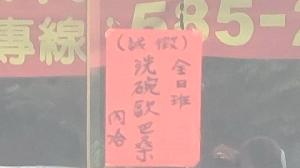 專線
585-2
(試做)
全日班
洗碗歐巴桑
內洽